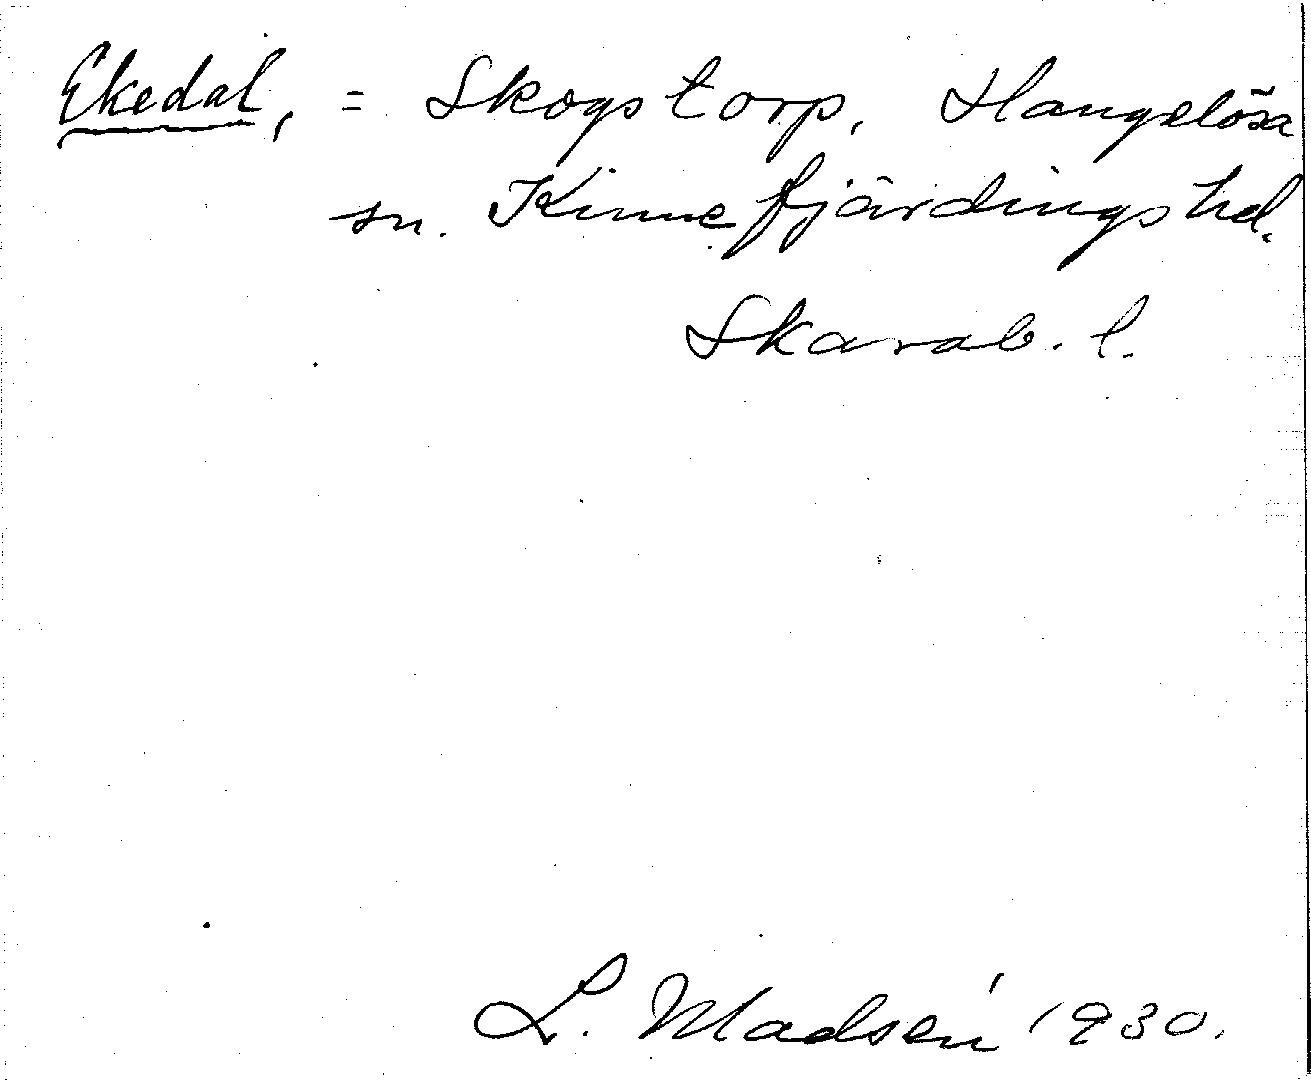 Ekedal, = Skogstorp, Hangelösa
sn. Kinnefjärdings hd.
Skarab. l.
L. Madsén 1930.